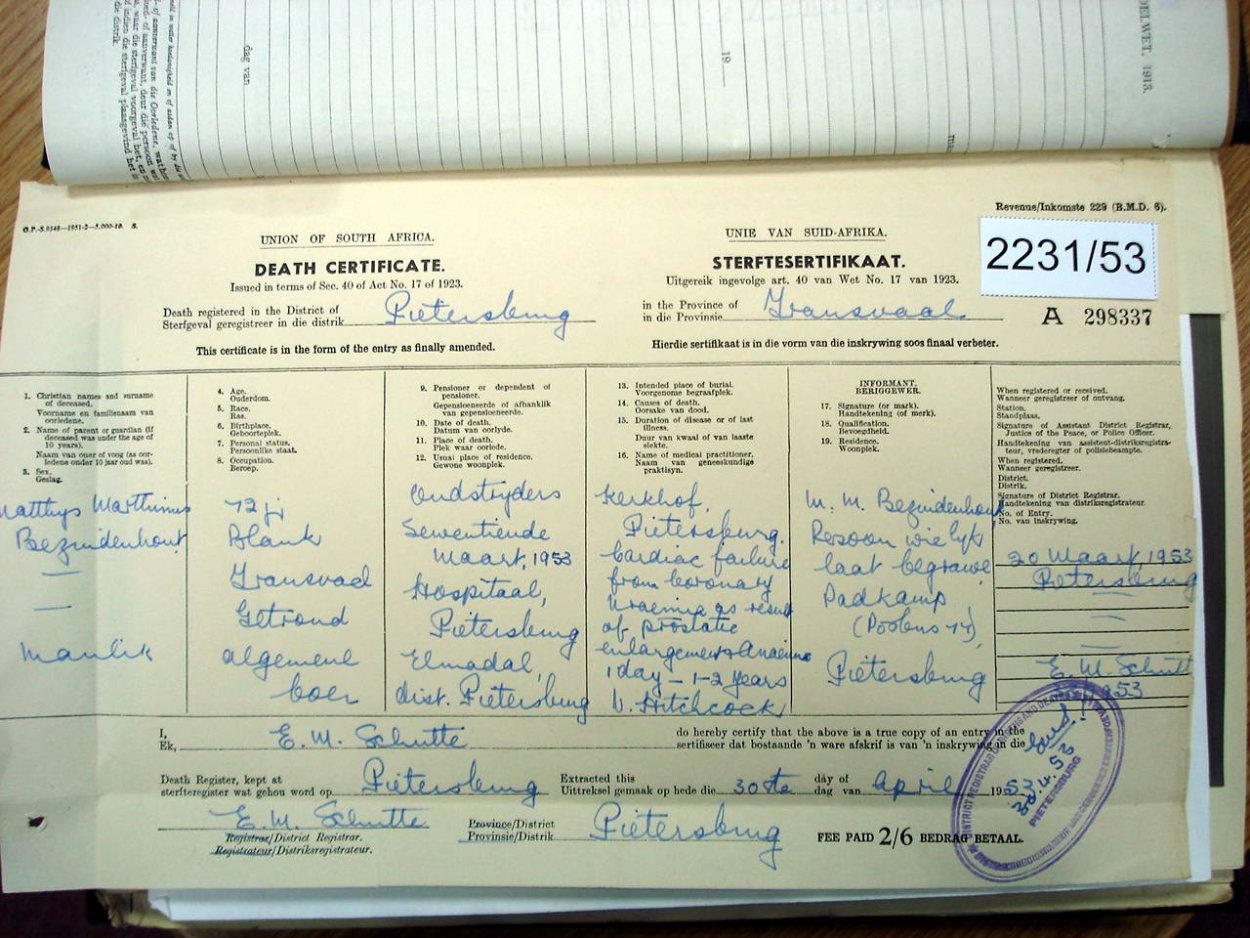 DELWET, 1913.
19
dag van
O.P.-S.9348—1951-2—5,000-10. S.
Revenue/Inkomste 229 (B.M.D. 6).
UNION OF SOUTH AFRICA.
UNIE VAN SUID-AFRIKA.
2231/53
DEATH CERTIFICATE.
STERFTESERTIFIKAAT.
Issued in terms of Sec. 40 of Act No. 17 of 1923.
Uitgereik ingevolge art. 40 van Wet No. 17 van 1923.
Death registered in the District of
Sterfgeval geregistreer in die distrik Pietersburg
in the Province of
in die Provinsie Transvaal
A 298337
This certificate is in the form of the entry as finally amended.
Hierdie sertifikaat is in die vorm van die inskrywing soos finaal verbeter.
1. Christian names and surname
of deceased.
Voorname en familienaam van
oorledene.
2. Name of parent or guardian (if
deceased was under the age of
10 years).
Naam van ouer of voog (as oor-
ledene onder 10 jaar oud was).
3. Sex.
Geslag.
Matthys Marthinus
Bezuidenhout
—
—
Manlik
4. Age.
Ouderdom.
5. Race.
Ras.
6. Birthplace.
Geboorteplek.
7. Personal status.
Persoonlike staat.
8. Occupation.
Beroep.
72 jr
Blank
Transvaal
Getroud
algemene
boer
9. Pensioner or dependent of
pensioner.
Gepensioeneerde of afhanklik
van gepensioeneerde.
10. Date of death.
Datum van oorlyde.
11. Place of death.
Plek waar oorlede.
12. Usual place of residence.
Gewone woonplek.
Oudstryders
Sewentiende
Maart, 1953
Hospitaal,
Pietersburg
Elmadal,
dist. Pietersburg
13. Intended place of burial.
Voorgenome begraafplek.
14. Causes of death.
Oorsake van dood.
15. Duration of disease or of last
illness.
Duur van kwaal of van laaste
siekte.
16. Name of medical practitioner.
Naam van geneeskundige
praktisyn.
Kerkhof,
Pietersburg.
Cardiac failure
from coronary
Uraemia as result
of prostatic
enlargement & Anaemia
1 day – 1-2 years
V. Hitchcock
INFORMANT.
BERIGGEWER.
17. Signature (or mark).
Handtekening (of merk).
18. Qualification.
Bevoegdheid.
19. Residence.
Woonplek.
M. M. Bezuidenhout
Persoon wie lyk
laat begrawe
Padkamp
Pietersburg
When registered or received.
Wanneer geregistreer of ontvang.
Station.
Standplaas.
Signature of Assistant District Registrar,
Justice of the Peace, or Police Officer.
Handtekening van assistent-distriksregistra-
teur, vrederegter of polisiebeampte.
When registered.
Wanneer geregistreer.
District.
Distrik.
Signature of District Registrar.
Handtekening van distriksregistrateur.
No. of Entry.
No. van inskrywing.
20 Maart, 1953
Pietersburg
—
—
E. M. Schutte
I,
Ek, E. M. Schutte
do hereby certify that the above is a true copy of an entry in the
sertifiseer dat bostaande 'n ware afskrif is van 'n inskrywing in die
Death Register, kept at
sterfteregister wat gehou word op Pietersburg
Extracted this
Uittreksel gemaak op hede die 30ste
day of
dag van April 1953
E. M. Schutte
Registrar/District Registrar.
Registrateur/Distriksregistrateur.
Province/District
Provinsie/Distrik Pietersburg
FEE PAID 2/6 BEDRAG BETAAL.
30.4.53
PIETERSBURG